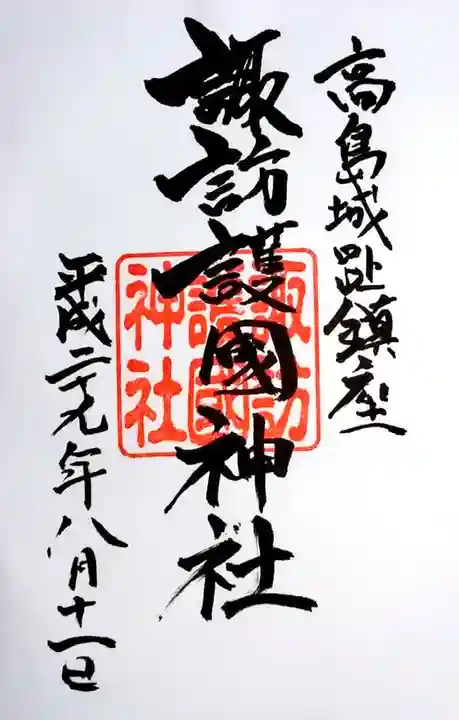 高島城趾鎮座
諏訪護國神社
諏訪
護國
神社
平成二十九年八月十一日